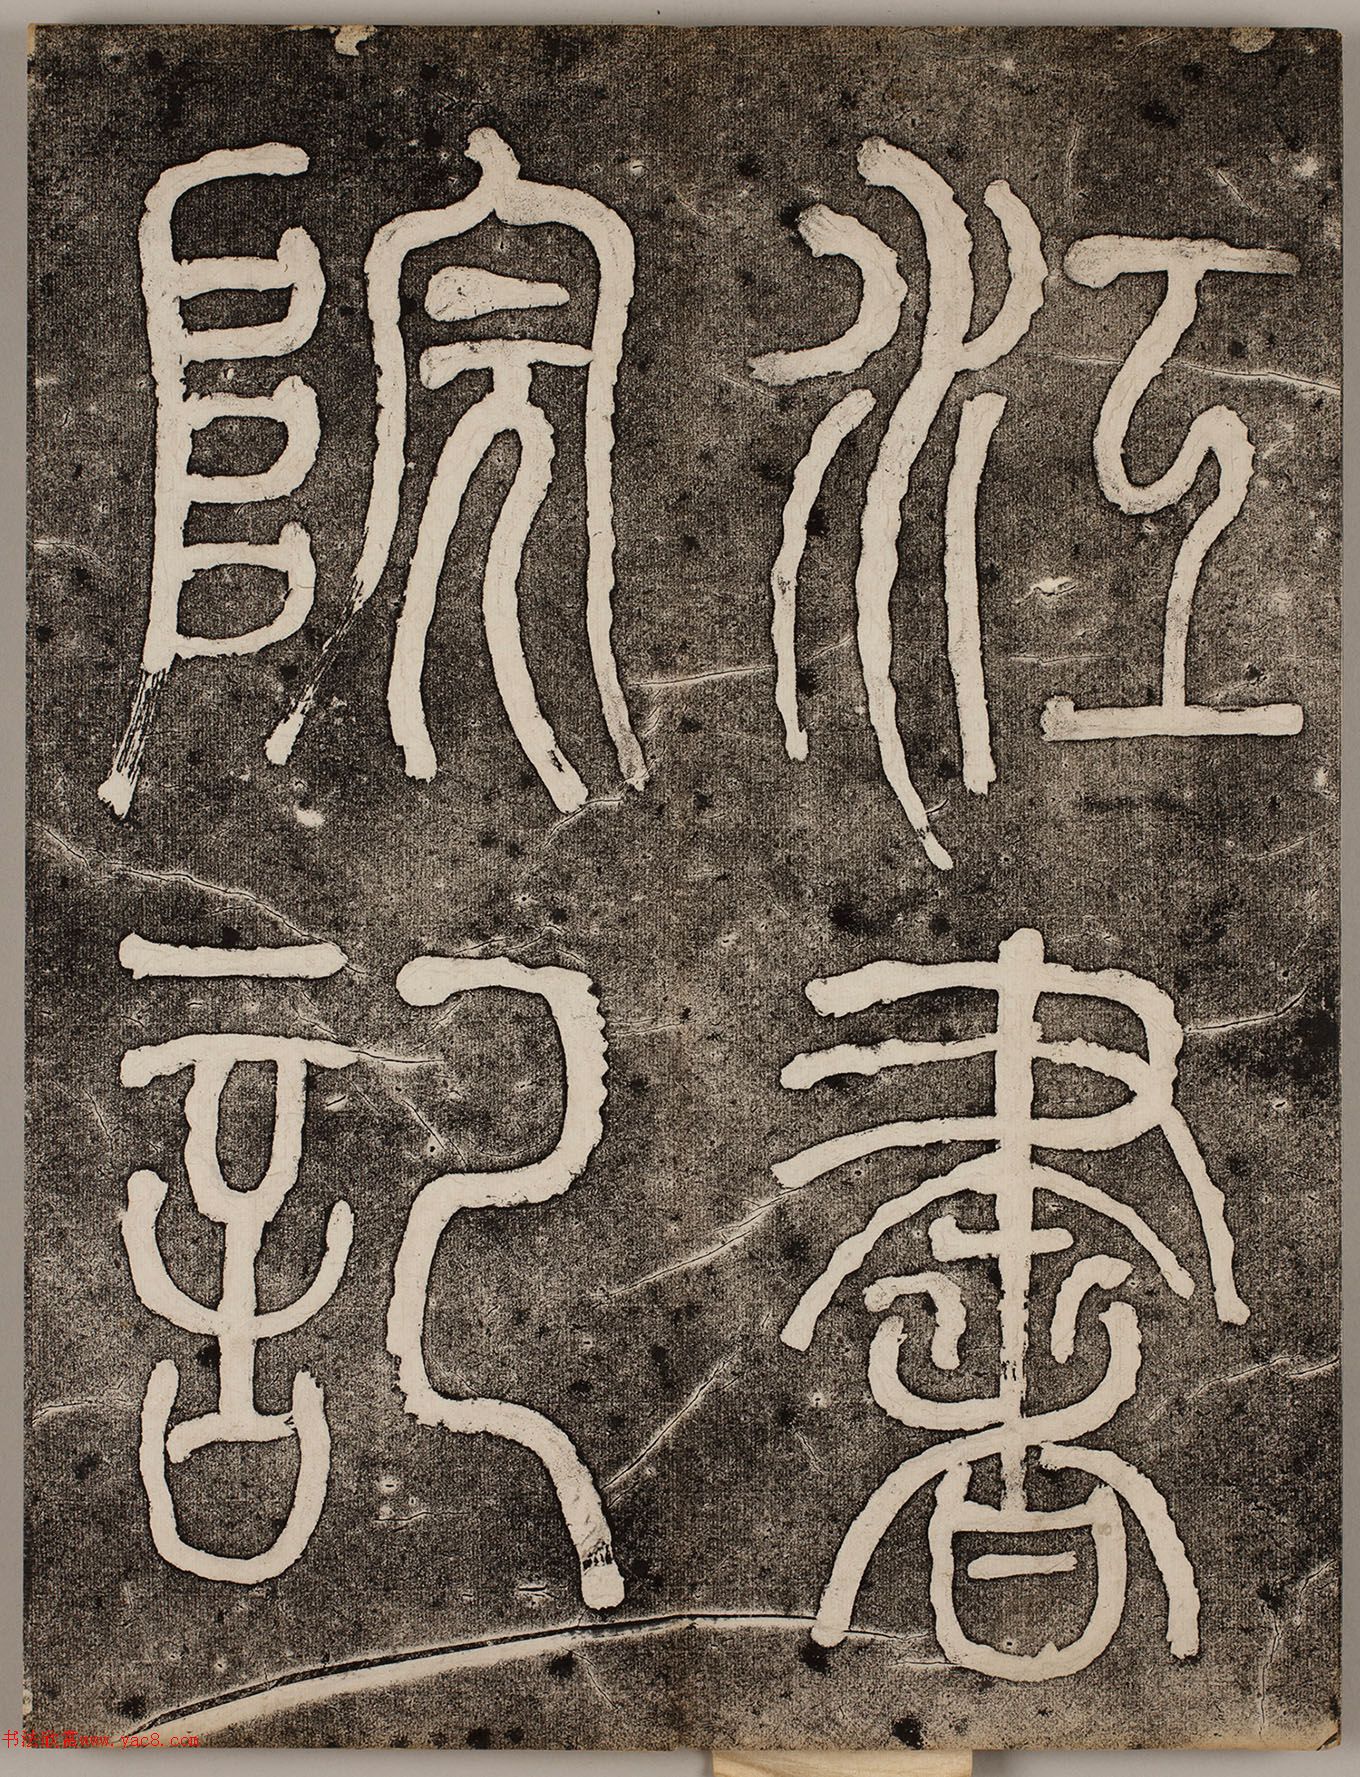 江書
院記
书法欣赏www.yac8.com